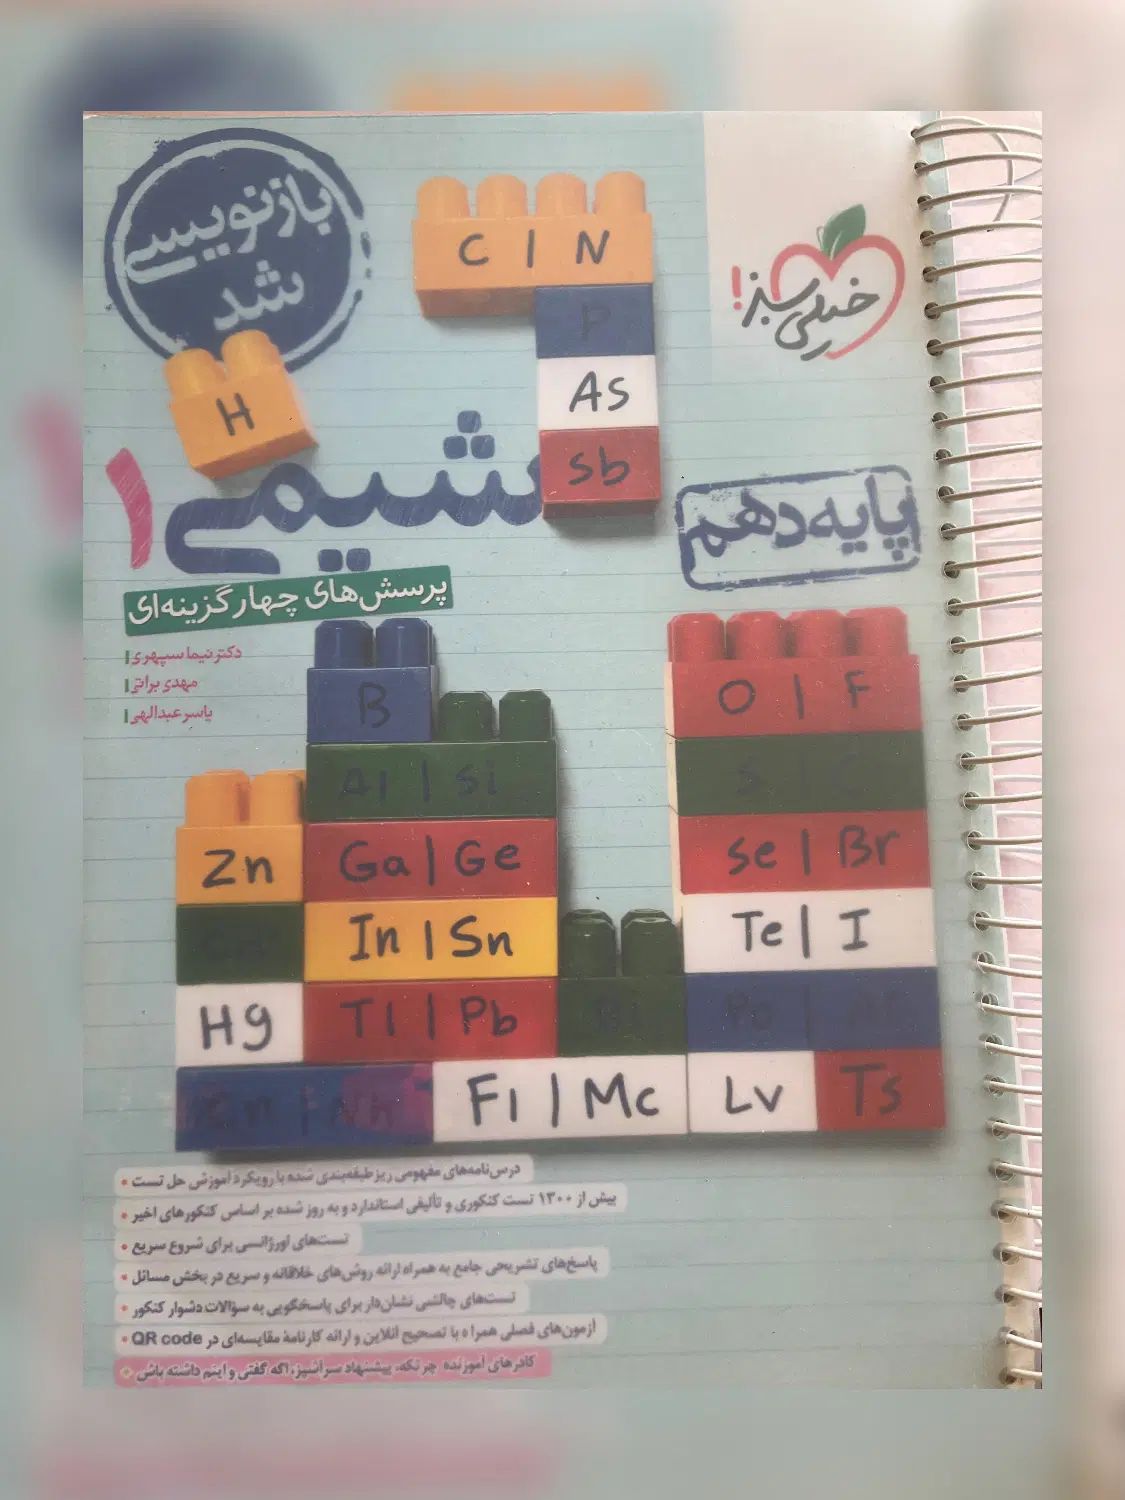 بازنویسی
شد
C | N
خیلی سبز!
P
As
H
Sb
شیمی ۱
پایه دهم
پرسش‌های چهارگزینه‌ای
دکتر نیما سپهری
مهدی براتی
یاسر عبدالهی
B
O | F
Al | Si
S |
Zn
Ga | Ge
Se | Br
In | Sn
Te | I
Hg
Tl | Pb
Bi
Po | At
Cn | Nh
Fl | Mc
Lv
Ts
درس‌نامه‌های مفهومی ریز طبقه‌بندی شده با رویکرد آموزش حل تست
بیش از ۱۳۰۰ تست کنکوری و تألیفی استاندارد و به روز شده بر اساس کنکورهای اخیر
تست‌های اورژانسی برای شروع سریع
پاسخ‌های تشریحی جامع به همراه ارائه روش‌های خلاقانه و سریع در بخش مسائل
تست‌های چالشی نشان‌دار برای پاسخگویی به سؤالات دشوار کنکور
آزمون‌های فصلی همراه با تصحیح آنلاین و ارائه کارنامۀ مقایسه‌ای در QR code
کادرهای آموزنده چرتکه، پیشنهاد سرآشپز، اگه گفتی و اینم داشته باش